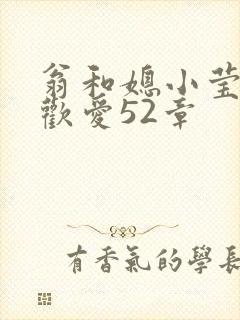 翁和媳小莹
歡愛52章
有香氣的學長